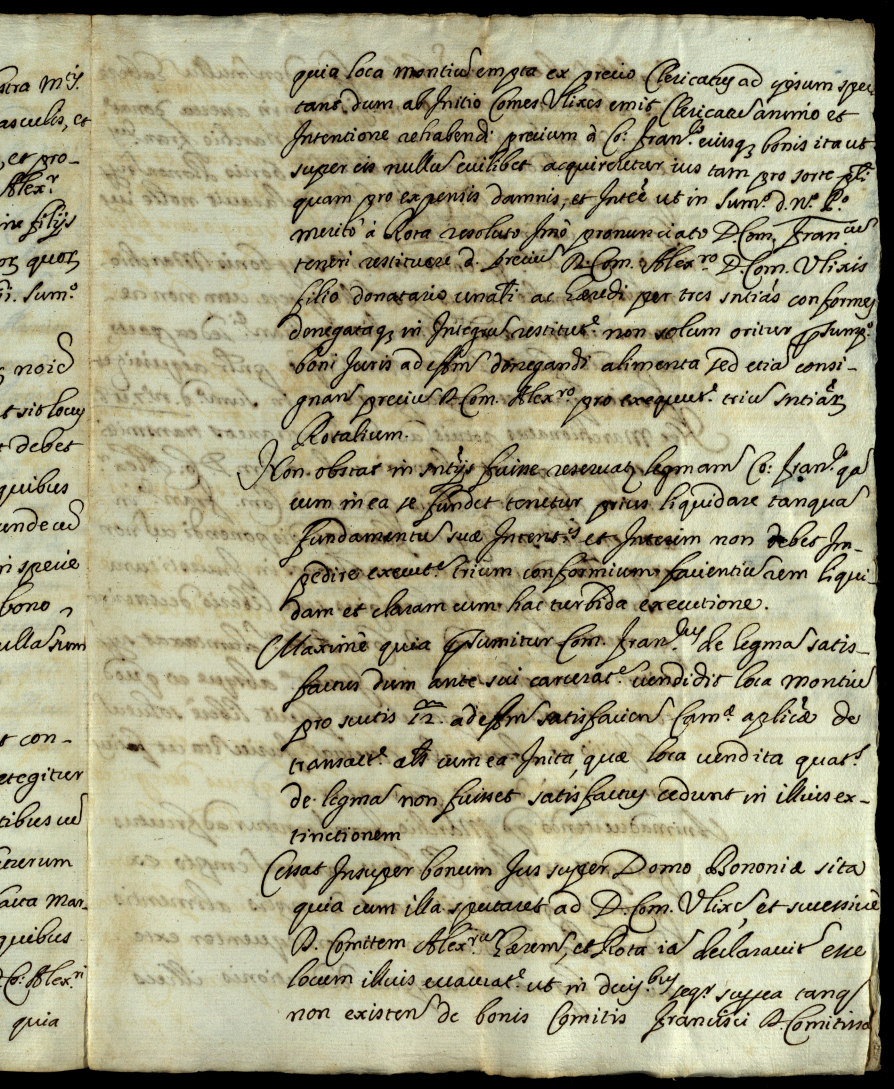 stra M.tijs
asculis, et
, et pro-
Alex.r
ine filijs
oꝝ quoꝝ
Sum.o
noie
t sit locus
t debet
quibus
unde cū
in specie
bono
nulla sum
t con-
etegitur
tibus
eterum
facta Man-
quibus
D. Co: Alex.ri
quia
quia loca montiū empta ex precio Clericatus ad ipsum spec
tant dum ab Initio Comes Ulixes emit Clericatū animo et
Intentione rehabendi precium à Co: Fran.co eiusq; bonis ita ut
super eis nullū cuilibet acquireretur ius tam pro sorte pli
quam pro expensis damnis, et Inteē ut in Sum.o d. n.o P.o
merito à Rota resoluto Imo pronunciato D. Com. Franciū
teneri restituere d. preciū D. Com. Alex.ro D. Com. Ulixis
filio donatario unali ac Haeredi per tres sntias conformes
denegataq; in Integrū restitut.e non solum oritur psump.o
boni Juris ad effm denegandi alimenta sed etia consi-
gnanī preciū D. Com. Alex.ro pro exequut.e triū sntiaꝝ
Rotalium.
Non obstat in sntijs fuisse reservatā legmam Co: Fran.co qa
cum in ea se fundet tenetur prius liquidare tanquā
fundamentū suæ Intent.is et Interim non debet Im-
pedire execut.e trium conformium facientiū rem liqui-
dam et claram cum hac turbida executione.
Maxime quia psumitur Com. Fran.cus de legmā satis-
factus dum ante sui carcerat.e vendidit loca montiū
pro scutis 12m. ad effm satisfaciend Cam.æ aplicæ de
transact.e als cum ea Inita, quæ loca vendita quat.s
de legmā non fuisset satisfactus cedunt in illius ex-
tinctionem
Cessat Insuper bonum Jus super Domo Bononiæ sita
quia cum illa spectaret ad D. Com. Ulixē, et successive
D. Comitem Alex.rū Haerem, et Rota iā declaravit esse
locum illius evacuat.e ut in decis.bus seqr suppea tanq
non existen de bonis Comitis Francisci D. Comitissa